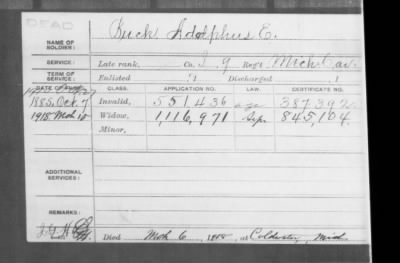 DEAD
NAME OF SOLDIER: Buck, Adolphus E.
SERVICE: Late rank, Co. I, 9 Reg't Mich. Cav.
TERM OF SERVICE: Enlisted 1 Discharged 1
DATE OF FILING. CLASS. APPLICATION NO. LAW. CERTIFICATE NO.
1885, Oct. 7 Invalid, 551,436 387,392
1918 Mch 15 Widow, 1,116,971 Sep. 845,104
Minor,
ADDITIONAL SERVICES:
REMARKS:
Died Mch 6, 1918, at Coldwater, Mich